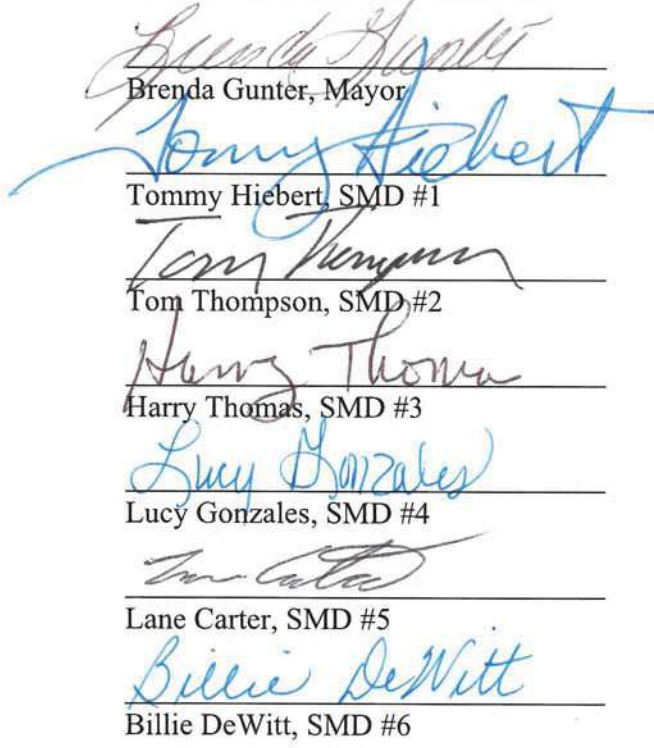 Brenda Gunter
Brenda Gunter, Mayor
Tommy Hiebert
Tommy Hiebert, SMD #1
Tom Thompson
Tom Thompson, SMD #2
Harry Thomas
Harry Thomas, SMD #3
Lucy Gonzales
Lucy Gonzales, SMD #4
Lane Carter, SMD #5
Billie DeWitt
Billie DeWitt, SMD #6